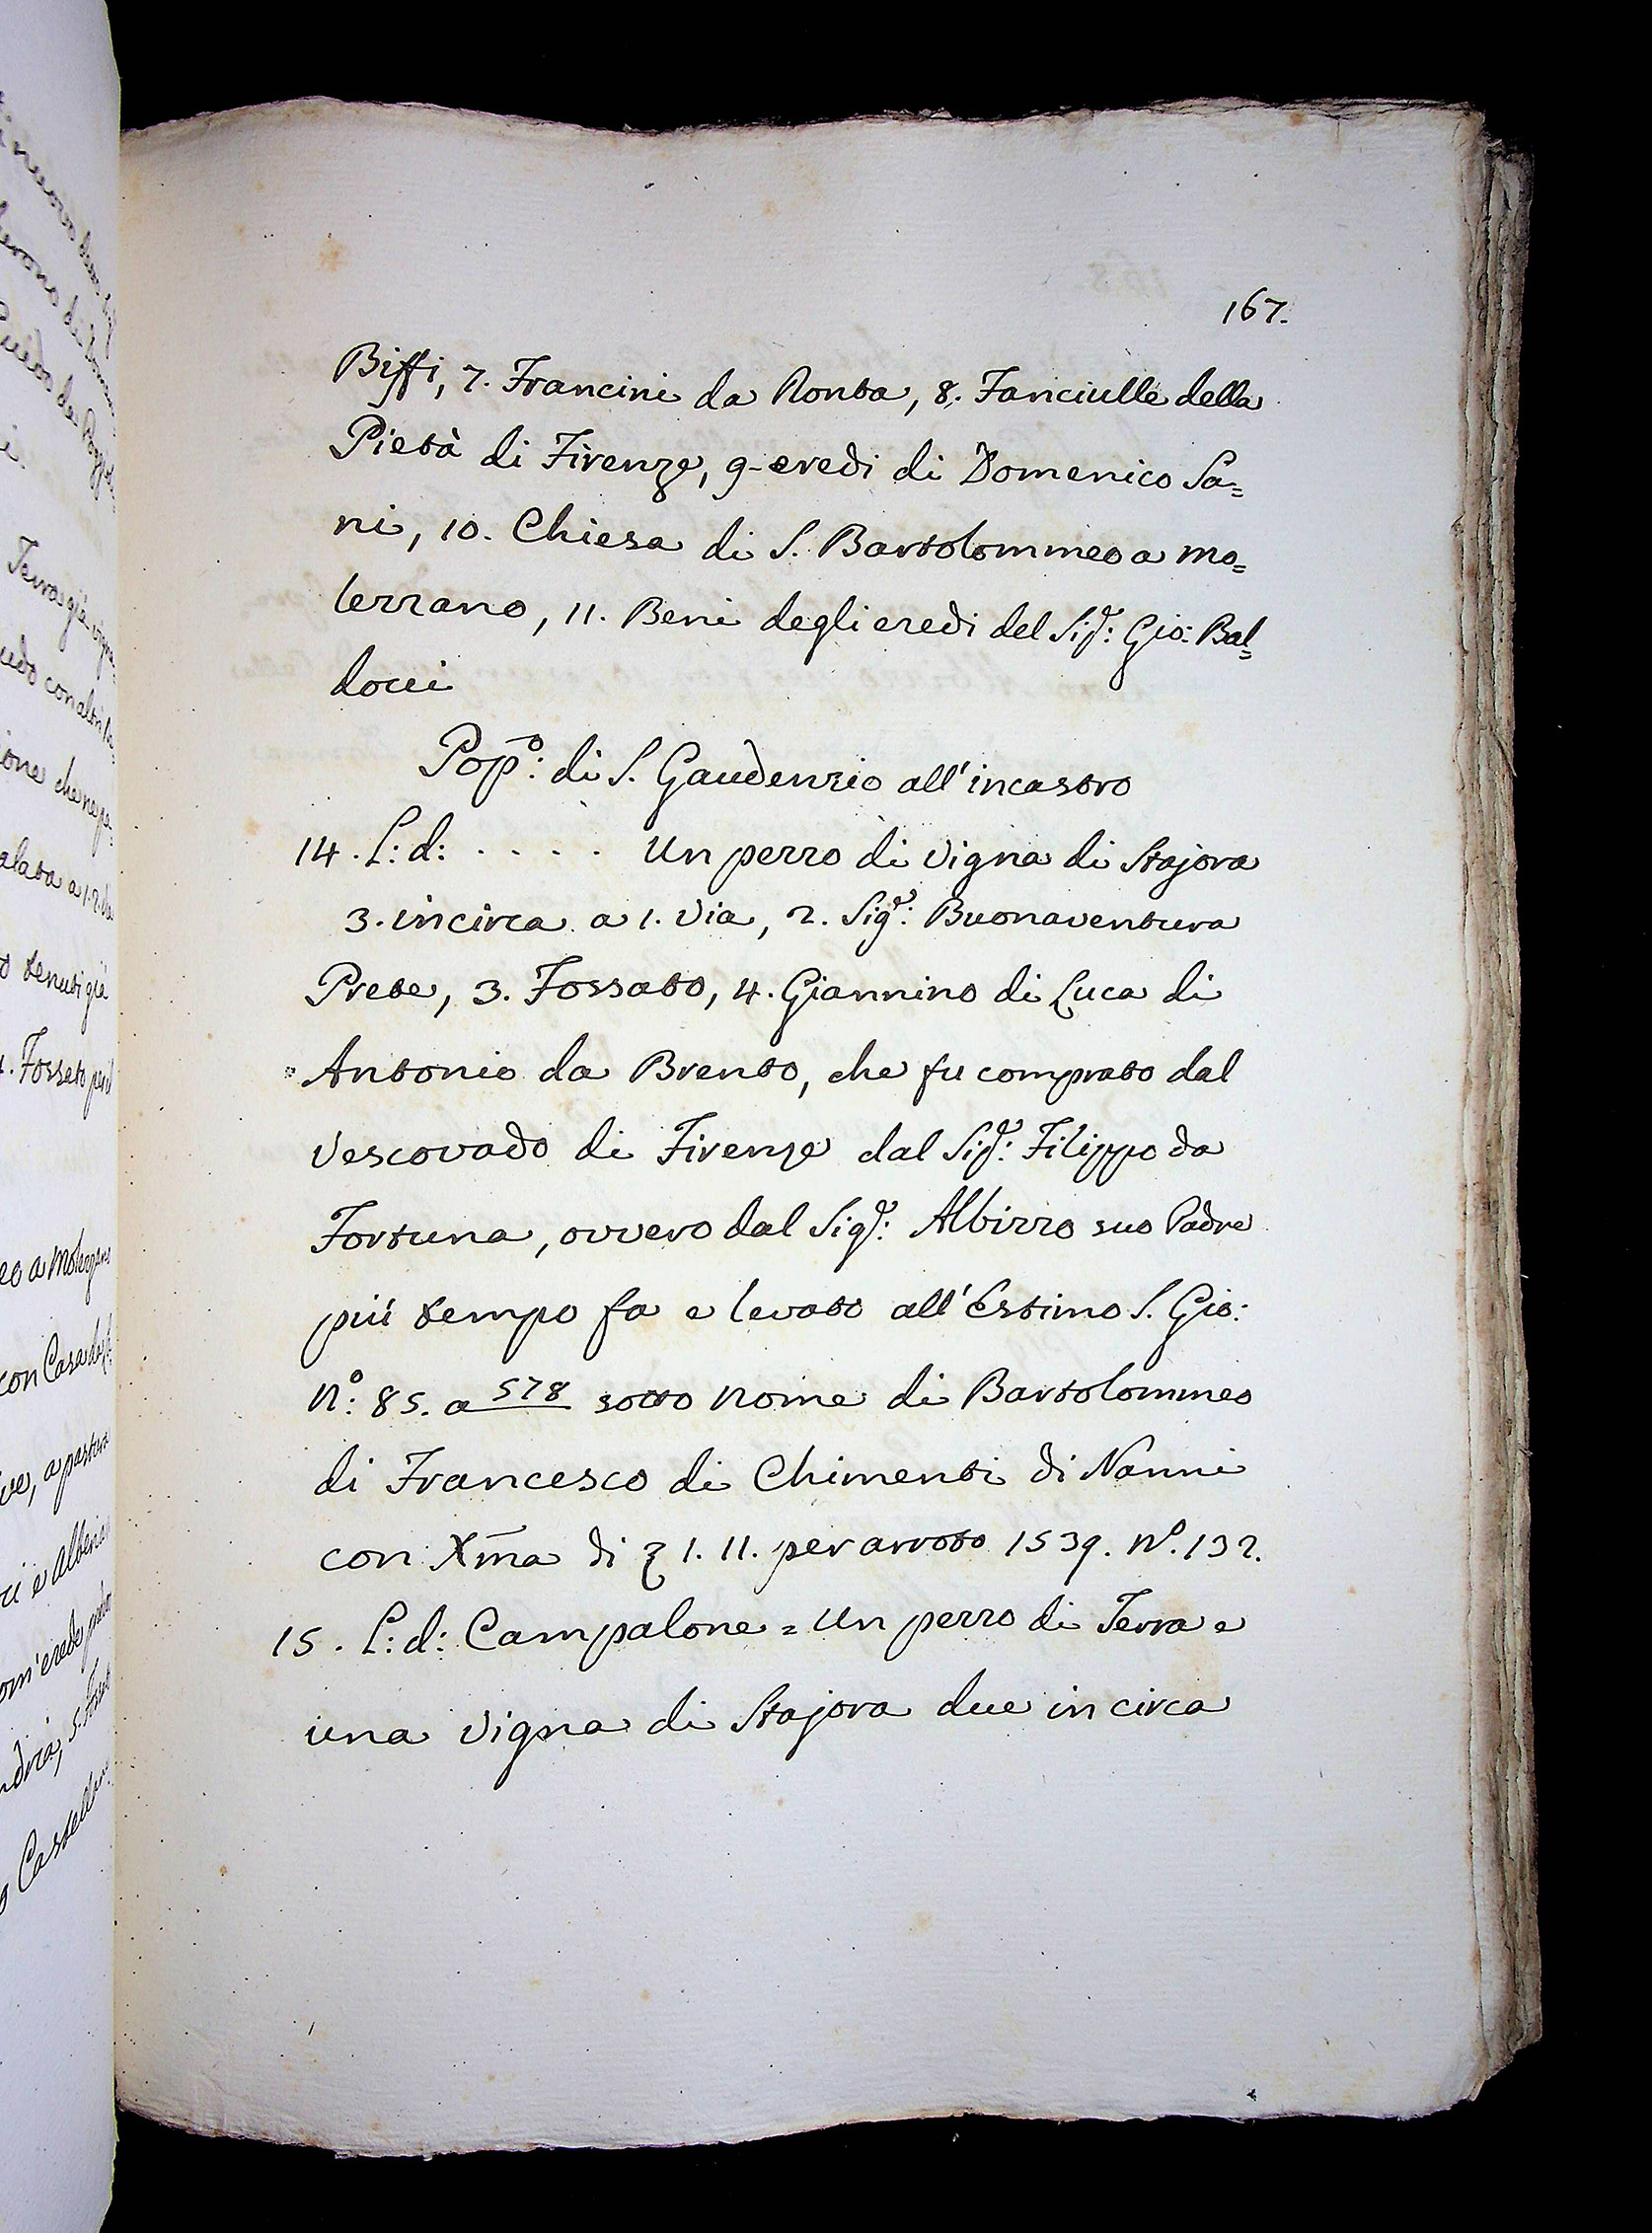 167.
Biffi, 7. Francini da Ronta, 8. Fanciulle della
Pietà di Firenze, 9- eredi di Domenico Sa=
ni, 10. Chiesa di S. Bartolommeo a Mo=
lezzano, 11. Beni degli eredi del Sig.r: Gio: Bal=
docci
Pop.o: di S. Gaudenzio all'incastro
14. L: d: . . . . . Un pezzo di vigna di Stajora
3. incirca a 1. Via, 2. Sig.r: Buonaventura
Prete, 3. Fossato, 4. Giannino di Luca di
Antonio da Brento, che fu comprato dal
Vescovado di Firenze dal Sig.r: Filippo da
Fortuna, ovvero dal Sig.r: Albizzo suo Padre
più tempo fa e levato all'Estimo S. Gio:
N.o: 85. a 578 sotto nome di Bartolommeo
di Francesco di Chimenti di Nanni
con Xma di ʒ 1. 11. per arroto 1539. N.o. 132.
15. L: d: Campalone = Un pezzo di Terra e
una vigna di Stajora due in circa
Terra già
che ne
tenuti già
4. Fossato per
eo a Molezzano
con Casa da
a pastura
5. Fossato
Castellano